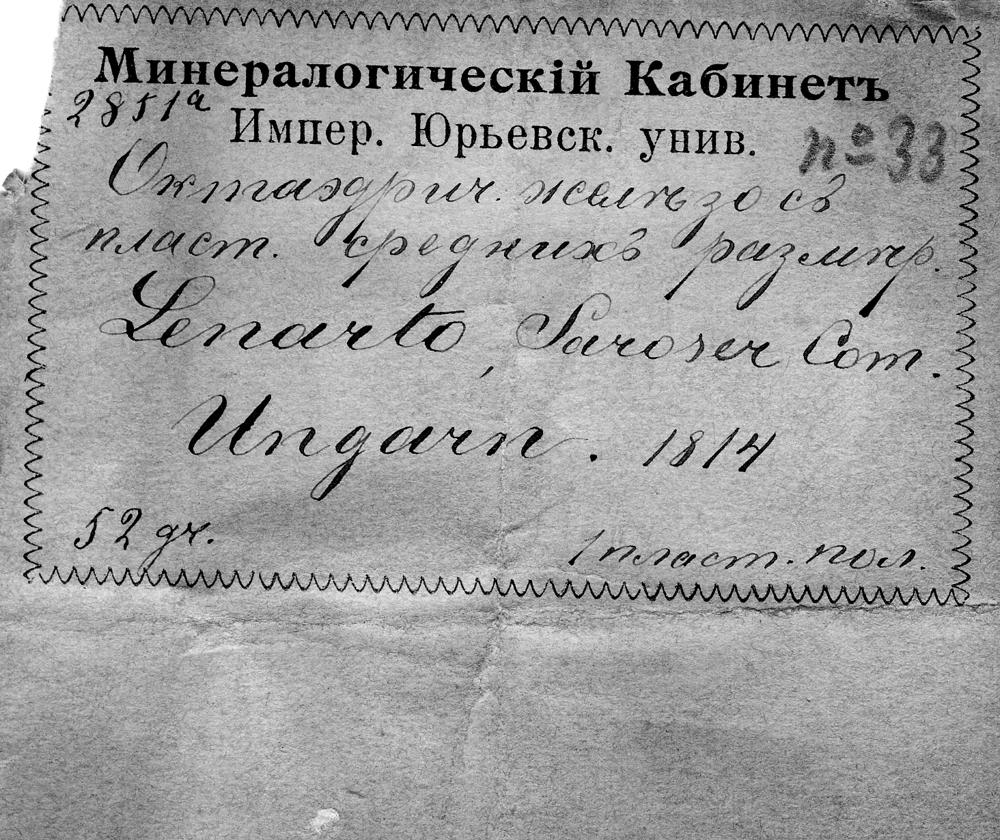 Минералогическій Кабинетъ
2851а
Импер. Юрьевск. унив.
№ 33
Октаэдрич. желѣзо съ
пласт. среднихъ размѣр.
Lenarto, Saroser Com.
Ungarn. 1814
52 gr.
1 пласт. пол.